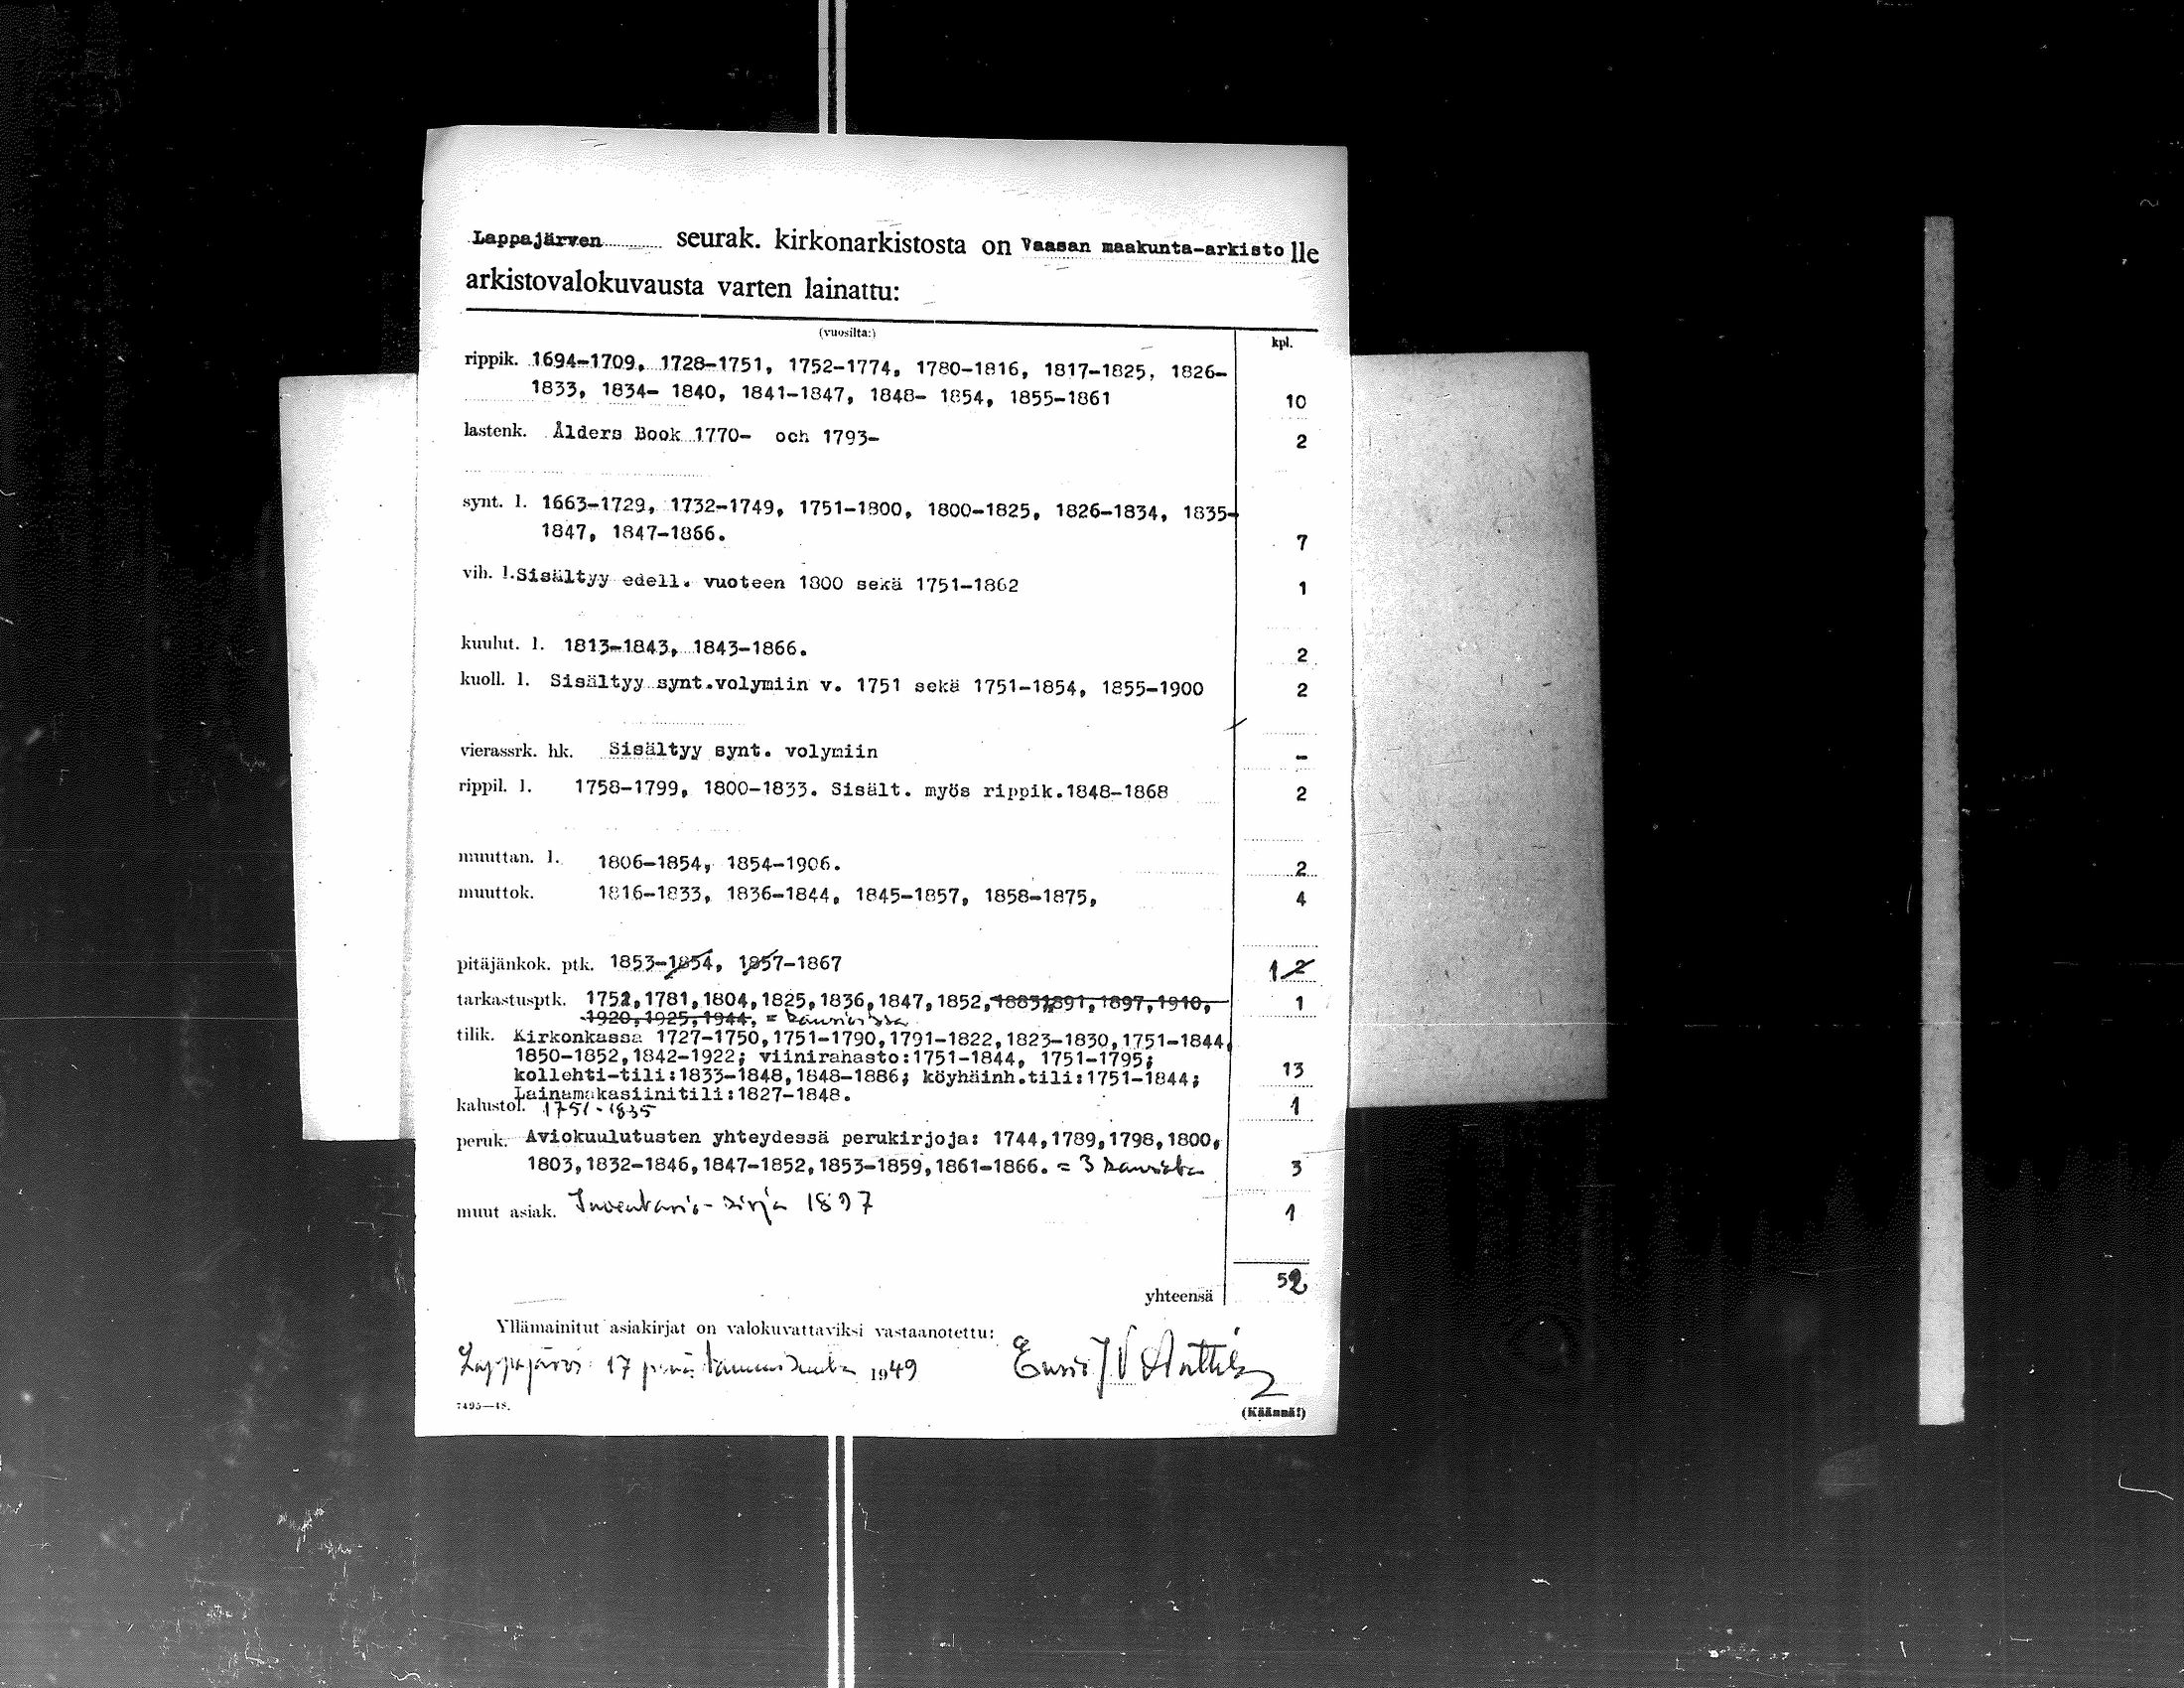 Lappajärven seurak. kirkonarkistosta on Vaasan maakunta-arkisto lle
arkistovalokuvausta varten lainattu:
(vuosilta:) kpl.
rippik. 1694-1709, 1728-1751, 1752-1774, 1780-1816, 1817-1825, 1826-
1833, 1834- 1840, 1841-1847, 1848- 1854, 1855-1861 10
lastenk. Ålders Book 1770- och 1793- 2
synt. l. 1663-1729, 1732-1749, 1751-1800, 1800-1825, 1826-1834, 1835-
1847, 1847-1866. 7
vih. l. Sisältyy edell. vuoteen 1800 sekä 1751-1862 1
kuulut. l. 1813-1843, 1843-1866. 2
kuoll. l. Sisältyy synt.volymiin v. 1751 sekä 1751-1854, 1855-1900 2
vierassrk. hk. Sisältyy synt. volymiin -
rippil. l. 1758-1799, 1800-1833. Sisält. myös rippik.1848-1868 2
muuttan. l. 1806-1854, 1854-1906. 2
muuttok. 1816-1833, 1836-1844, 1845-1857, 1858-1875, 4
pitäjänkok. ptk. 1853-1854, 1857-1867 1 2
tarkastusptk. 1752,1781,1804,1825,1836,1847,1852,1883,1891,1897,1910, 1
1920,1925,1944, =
tilik. Kirkonkassa 1727-1750,1751-1790,1791-1822,1823-1830,1751-1844,
1850-1852,1842-1922; viinirahasto:1751-1844, 1751-1795;
kollehti-tili:1833-1848,1848-1886; köyhäinh.tili:1751-1844; 13
Lainamakasiinitili:1827-1848.
kalustol. 1751-1835 1
peruk. Aviokuulutusten yhteydessä perukirjoja: 1744,1789,1798,1800,
1803,1832-1846,1847-1852,1853-1859,1861-1866. = 3 kansiota 3
muut asiak. Inventario-kirja 1897 1
yhteensä 52
Yllämainitut asiakirjat on valokuvattaviksi vastaanotettu:
Lappajärvi 17 päivä tammikuuta 1949
7495—48.
(Käännä!)